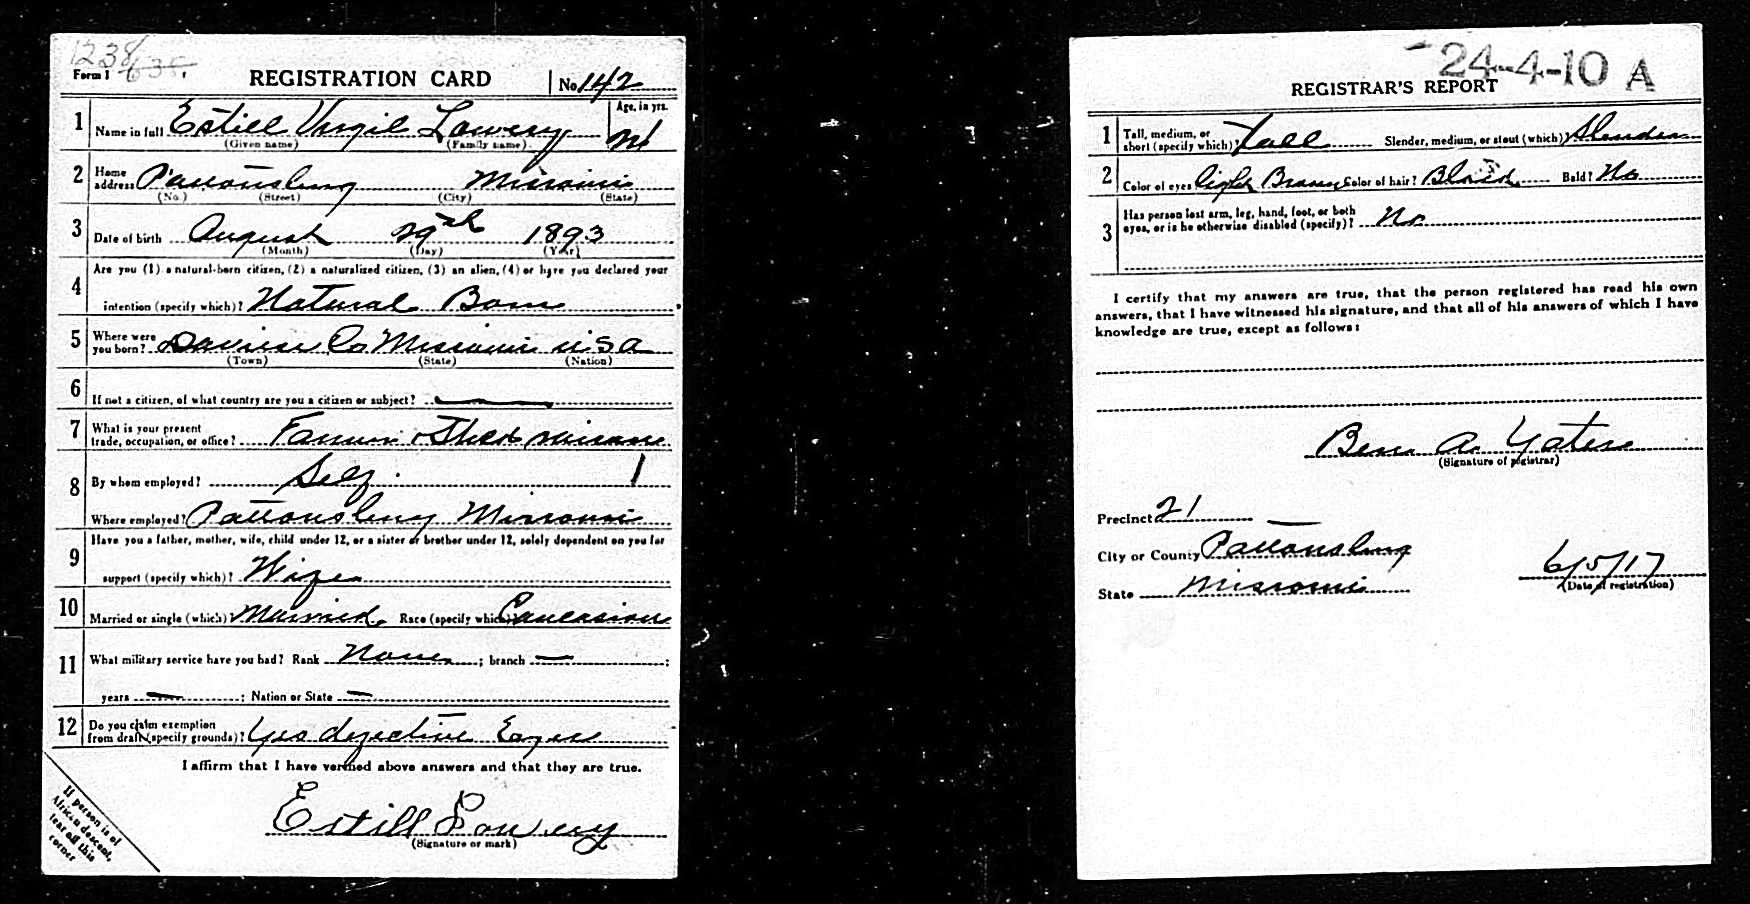 1238
Form 1 635
REGISTRATION CARD No. 142
1 Name in full Estill Virgil Lowery Age, in yrs.
(Given name) (Family name)
2 Home address Pattonsburg Missouri
(No.) (Street) (City) (State)
3 Date of birth August 29th 1893
(Month) (Day) (Year)
4 Are you (1) a natural-born citizen, (2) a naturalized citizen, (3) an alien, (4) or have you declared your
intention (specify which)? Natural Born
5 Where were you born? Daviess Co Missouri USA
(Town) (State) (Nation)
6 If not a citizen, of what country are you a citizen or subject? —
7 What is your present trade, occupation, or office? Farmer & Stock raiser
8 By whom employed? Self 1
Where employed? Pattonsburg Missouri
9 Have you a father, mother, wife, child under 12, or a sister or brother under 12, solely dependent on you for
support (specify which)? Wife
10 Married or single (which)? Married Race (specify which)? Caucasian
11 What military service have you had? Rank None ; branch — ;
years — ; Nation or State —
12 Do you claim exemption from draft (specify grounds)? Yes defective Eyes
I affirm that I have verified above answers and that they are true.
Estill Lowery
(Signature or mark)
If person is of
African descent,
tear off this
corner
24-4-10 A
REGISTRAR'S REPORT
1 Tall, medium, or short (specify which)? Tall Slender, medium, or stout (which)? Slender
2 Color of eyes Light Brown Color of hair? Black Bald? No
3 Has person lost arm, leg, hand, foot, or both eyes, or is he otherwise disabled (specify)? No
I certify that my answers are true, that the person registered has read his own
answers, that I have witnessed his signature, and that all of his answers of which I have
knowledge are true, except as follows:
Ben A. Yates
(Signature of registrar)
Precinct 21
City or County Pattonsburg
State Missouri
6/5/17
(Date of registration)